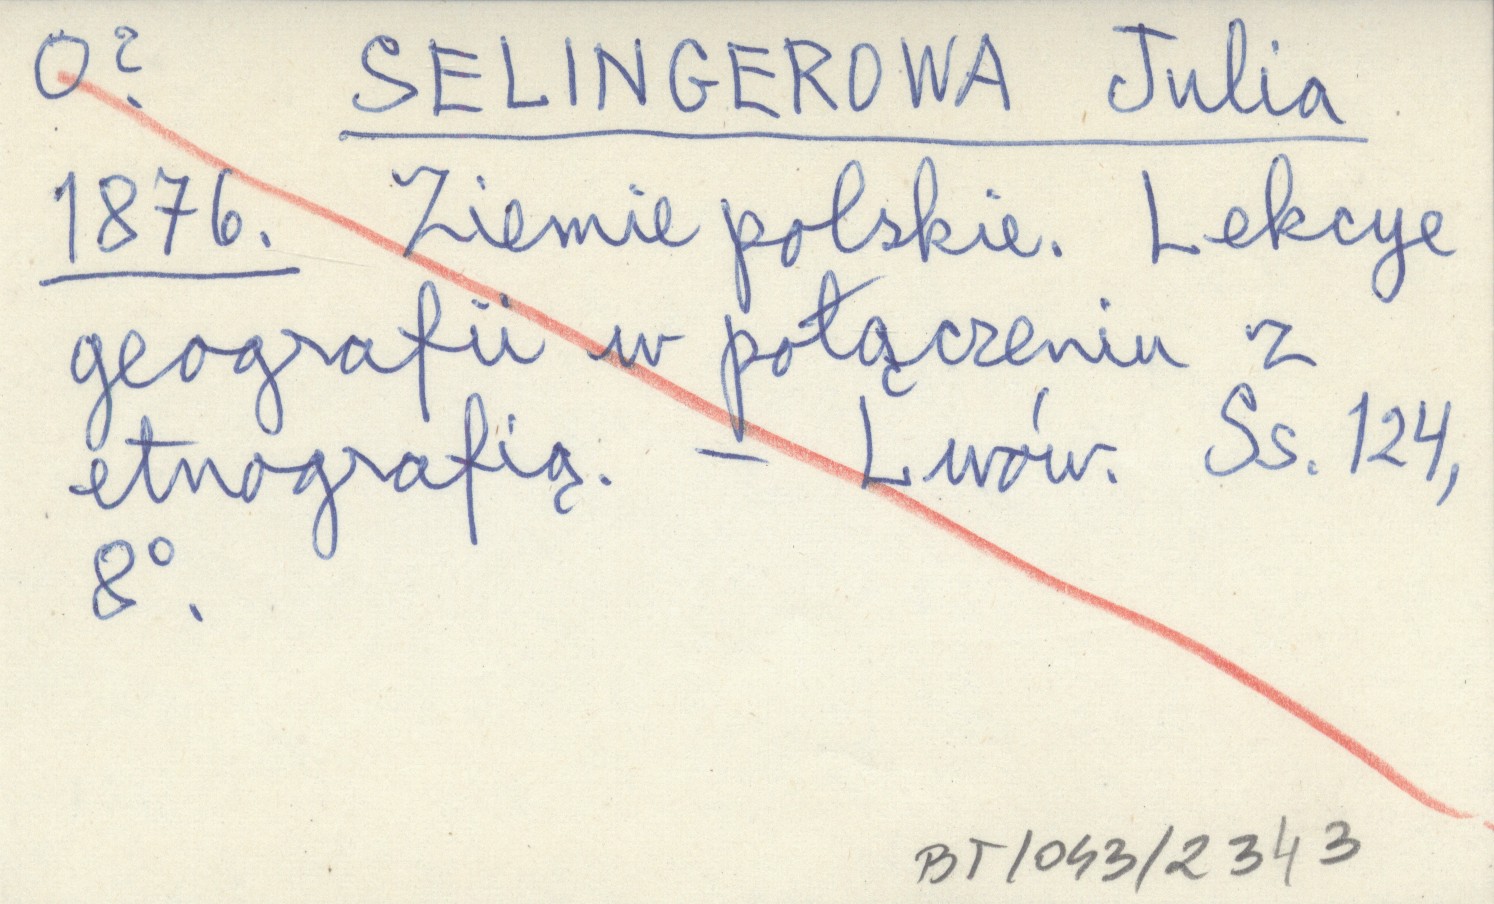 O? SELINGEROWA Julia
1876. Ziemie polskie. Lekcye
geografii w połączeniu z
etnografią. – Lwów. Ss. 124,
8°.
BT/043/2343